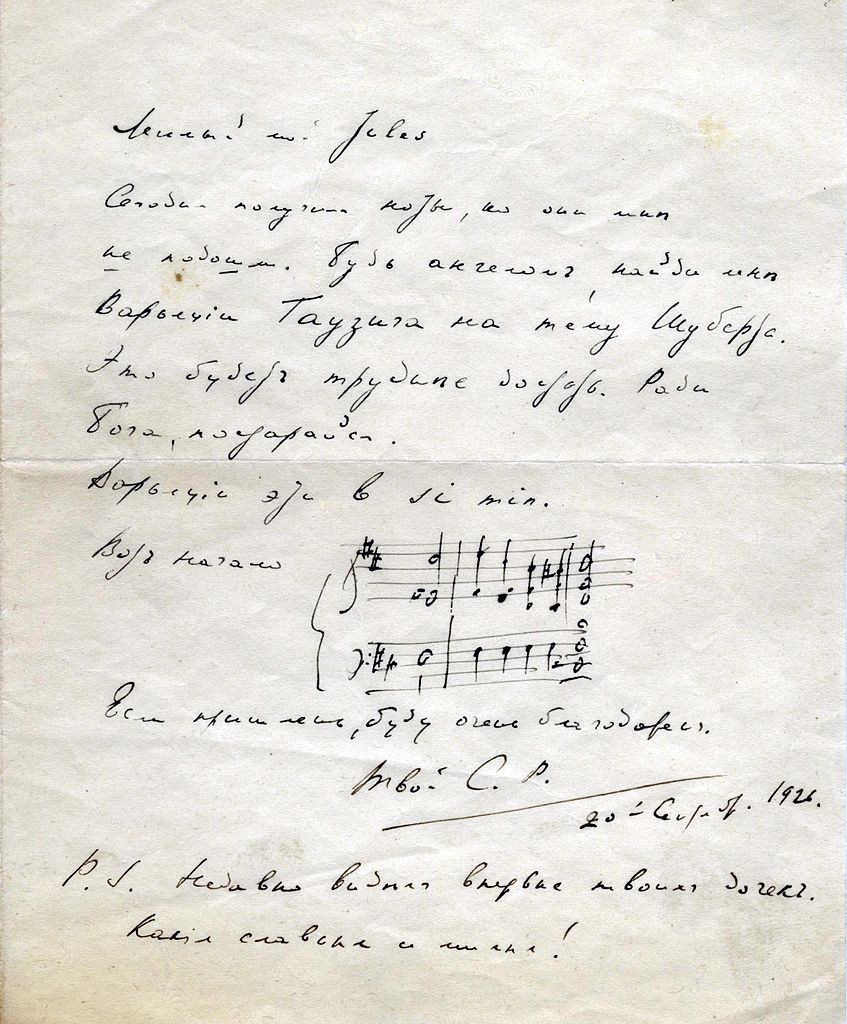 Милый мой Jules
Сегодня получилъ ноты, но они мнѣ
не подошли. Будь ангеломъ, найди мнѣ
Варьяціи Таузига на тему Шуберта.
Это будетъ труднѣе достать. Ради
Бога, постарайся.
Варьяціи эти в si min.
Вотъ начало
Если пришлешь, буду очень благодаренъ.
Твой С. Р.
20й Сентябр. 1926.
P. S. Недавно видѣлъ впервые твоихъ дочекъ.
Какія славныя и милыя!